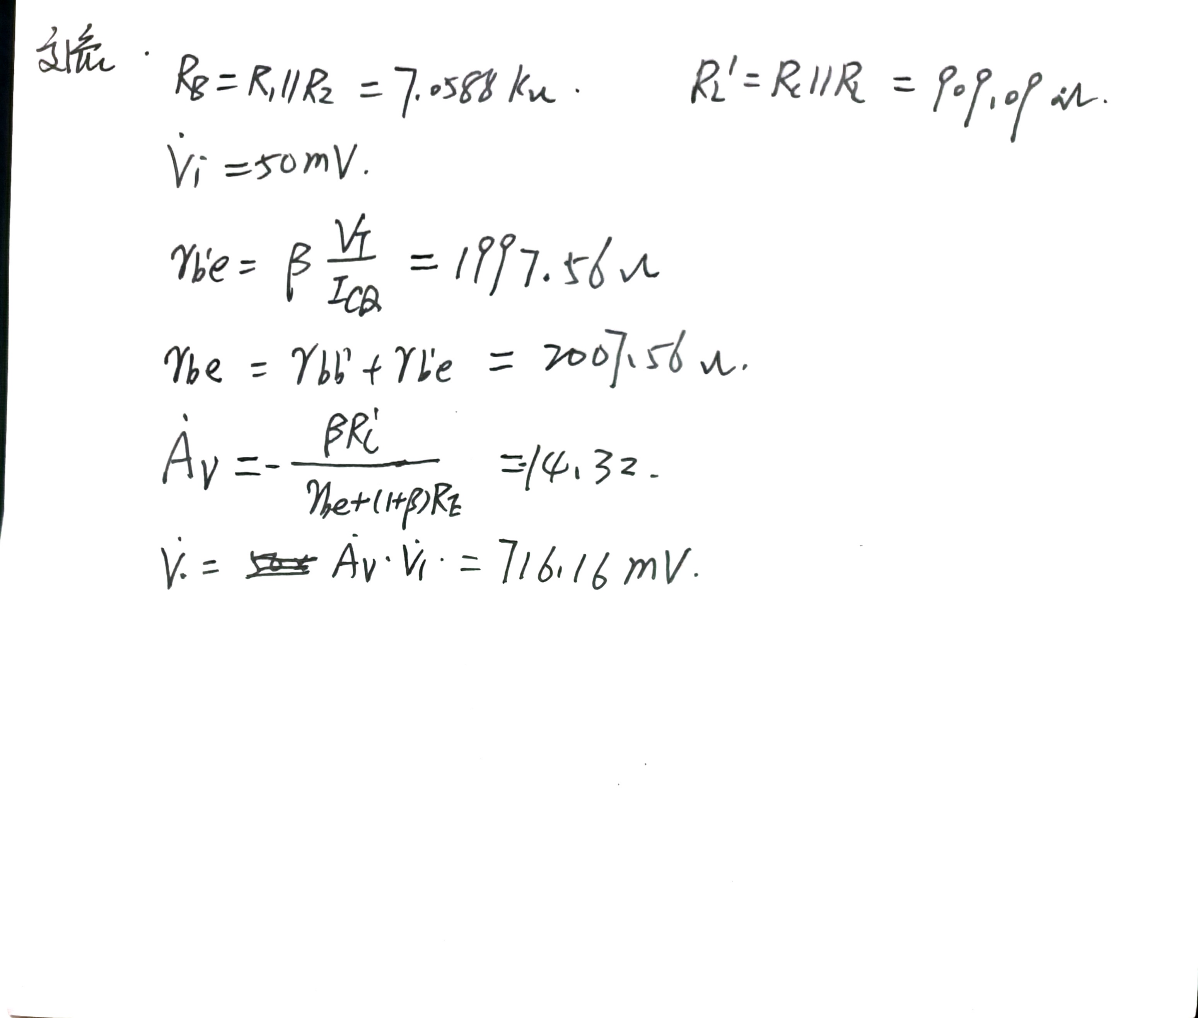 交流.
R_B = R₁//R₂ = 7.0588 kΩ. R_L' = R_C//R_L = 909.09 Ω.
V̇i = 50mV.
r_b'e = β V_T/I_CQ = 1997.56 Ω
r_be = r_bb' + r_b'e = 2007.56 Ω.
Ȧv = - βR_L'/(r_be+(1+β)R_E) = 14.32.
V̇o = Ȧv · V̇i = 716.16 mV.